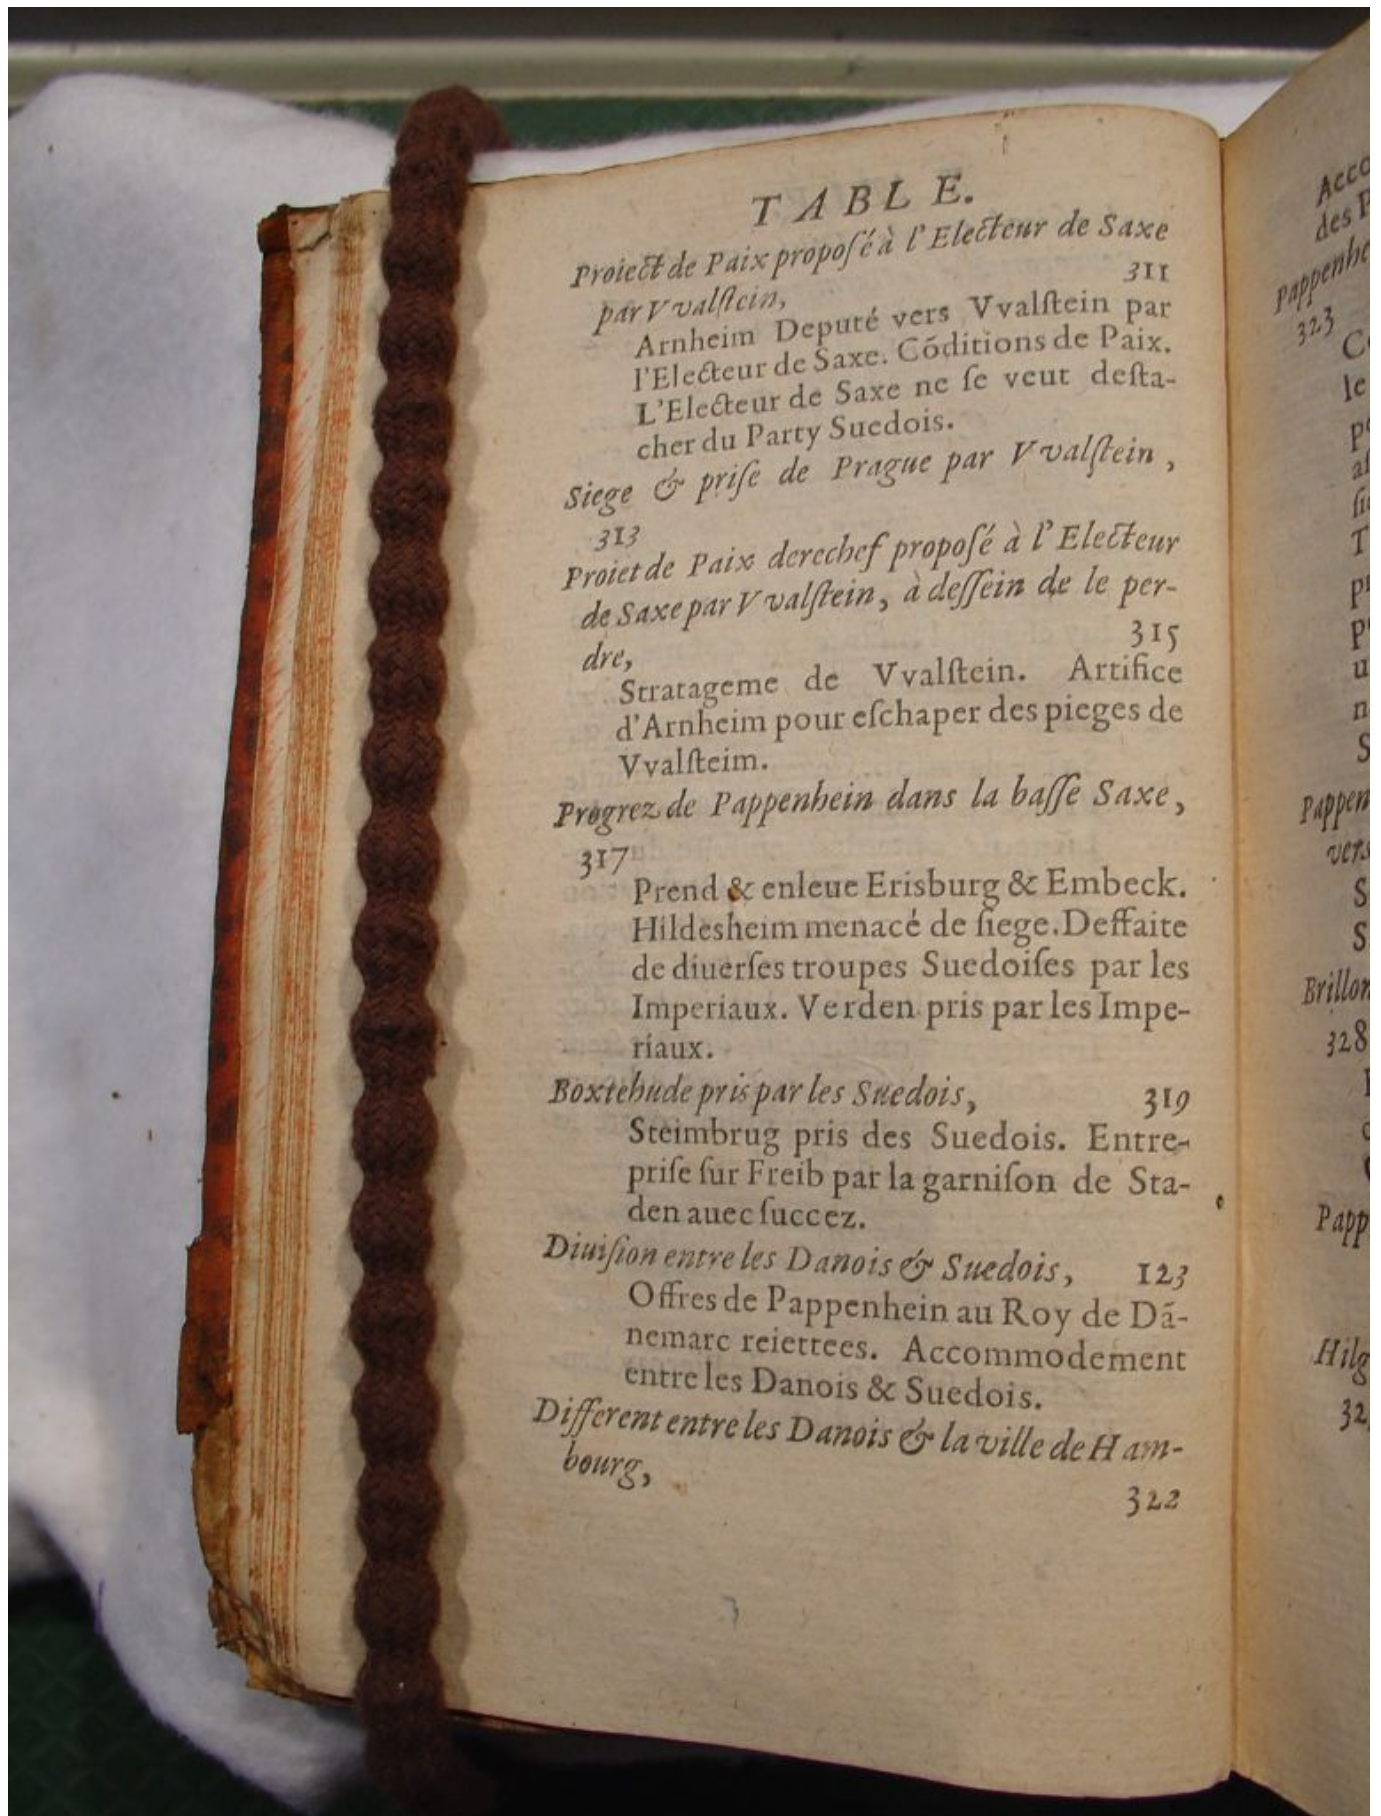 TABLE.
Proiect de Paix proposé à l'Electeur de Saxe
par Vvalstein, 311
Arnheim Deputé vers Vvalstein par
l'Electeur de Saxe. Cõditions de Paix.
L'Electeur de Saxe ne se veut desta-
cher du Party Suedois.
Siege & prise de Prague par Vvalstein,
313
Proiet de Paix derechef proposé à l'Electeur
de Saxe par Vvalstein, à dessein de le per-
dre, 315
Stratageme de Vvalstein. Artifice
d'Arnheim pour eschaper des pieges de
Vvalsteim.
Progrez de Pappenhein dans la basse Saxe,
317
Prend & enleue Erisburg & Embeck.
Hildesheim menacé de siege. Deffaite
de diuerses troupes Suedoises par les
Imperiaux. Verden pris par les Impe-
riaux.
Boxtehude pris par les Suedois, 319
Steimbrug pris des Suedois. Entre-
prise sur Freib par la garnison de Sta-
den auec succez.
Diuision entre les Danois & Suedois, 123
Offres de Pappenhein au Roy de Dã-
nemarc reiettees. Accommodement
entre les Danois & Suedois.
Different entre les Danois & la ville de Ham-
bourg, 322
Acco
des P
Pappenhe
323
Co
le
T
Pappen
vers
S
S
Brillon
328
Papp
Hilg
32